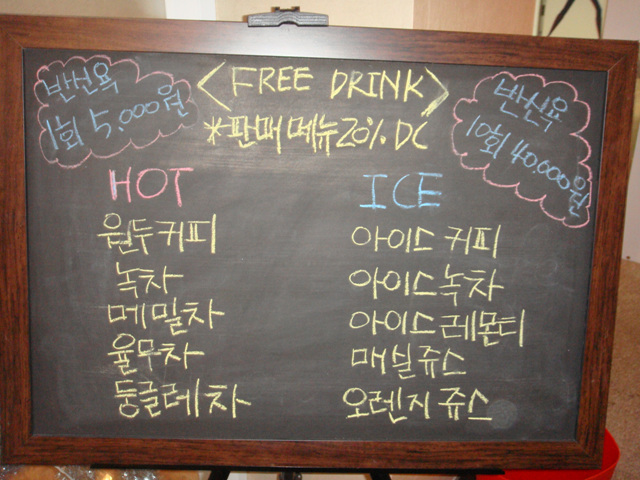 <FREE DRINK>
*판매 메뉴 20% DC
반신욕
1회 5,000원
반신욕
10회 40,000원
HOT
원두커피
녹차
메밀차
율무차
둥글레차
ICE
아이스커피
아이스녹차
아이스레몬티
매실쥬스
오렌지쥬스